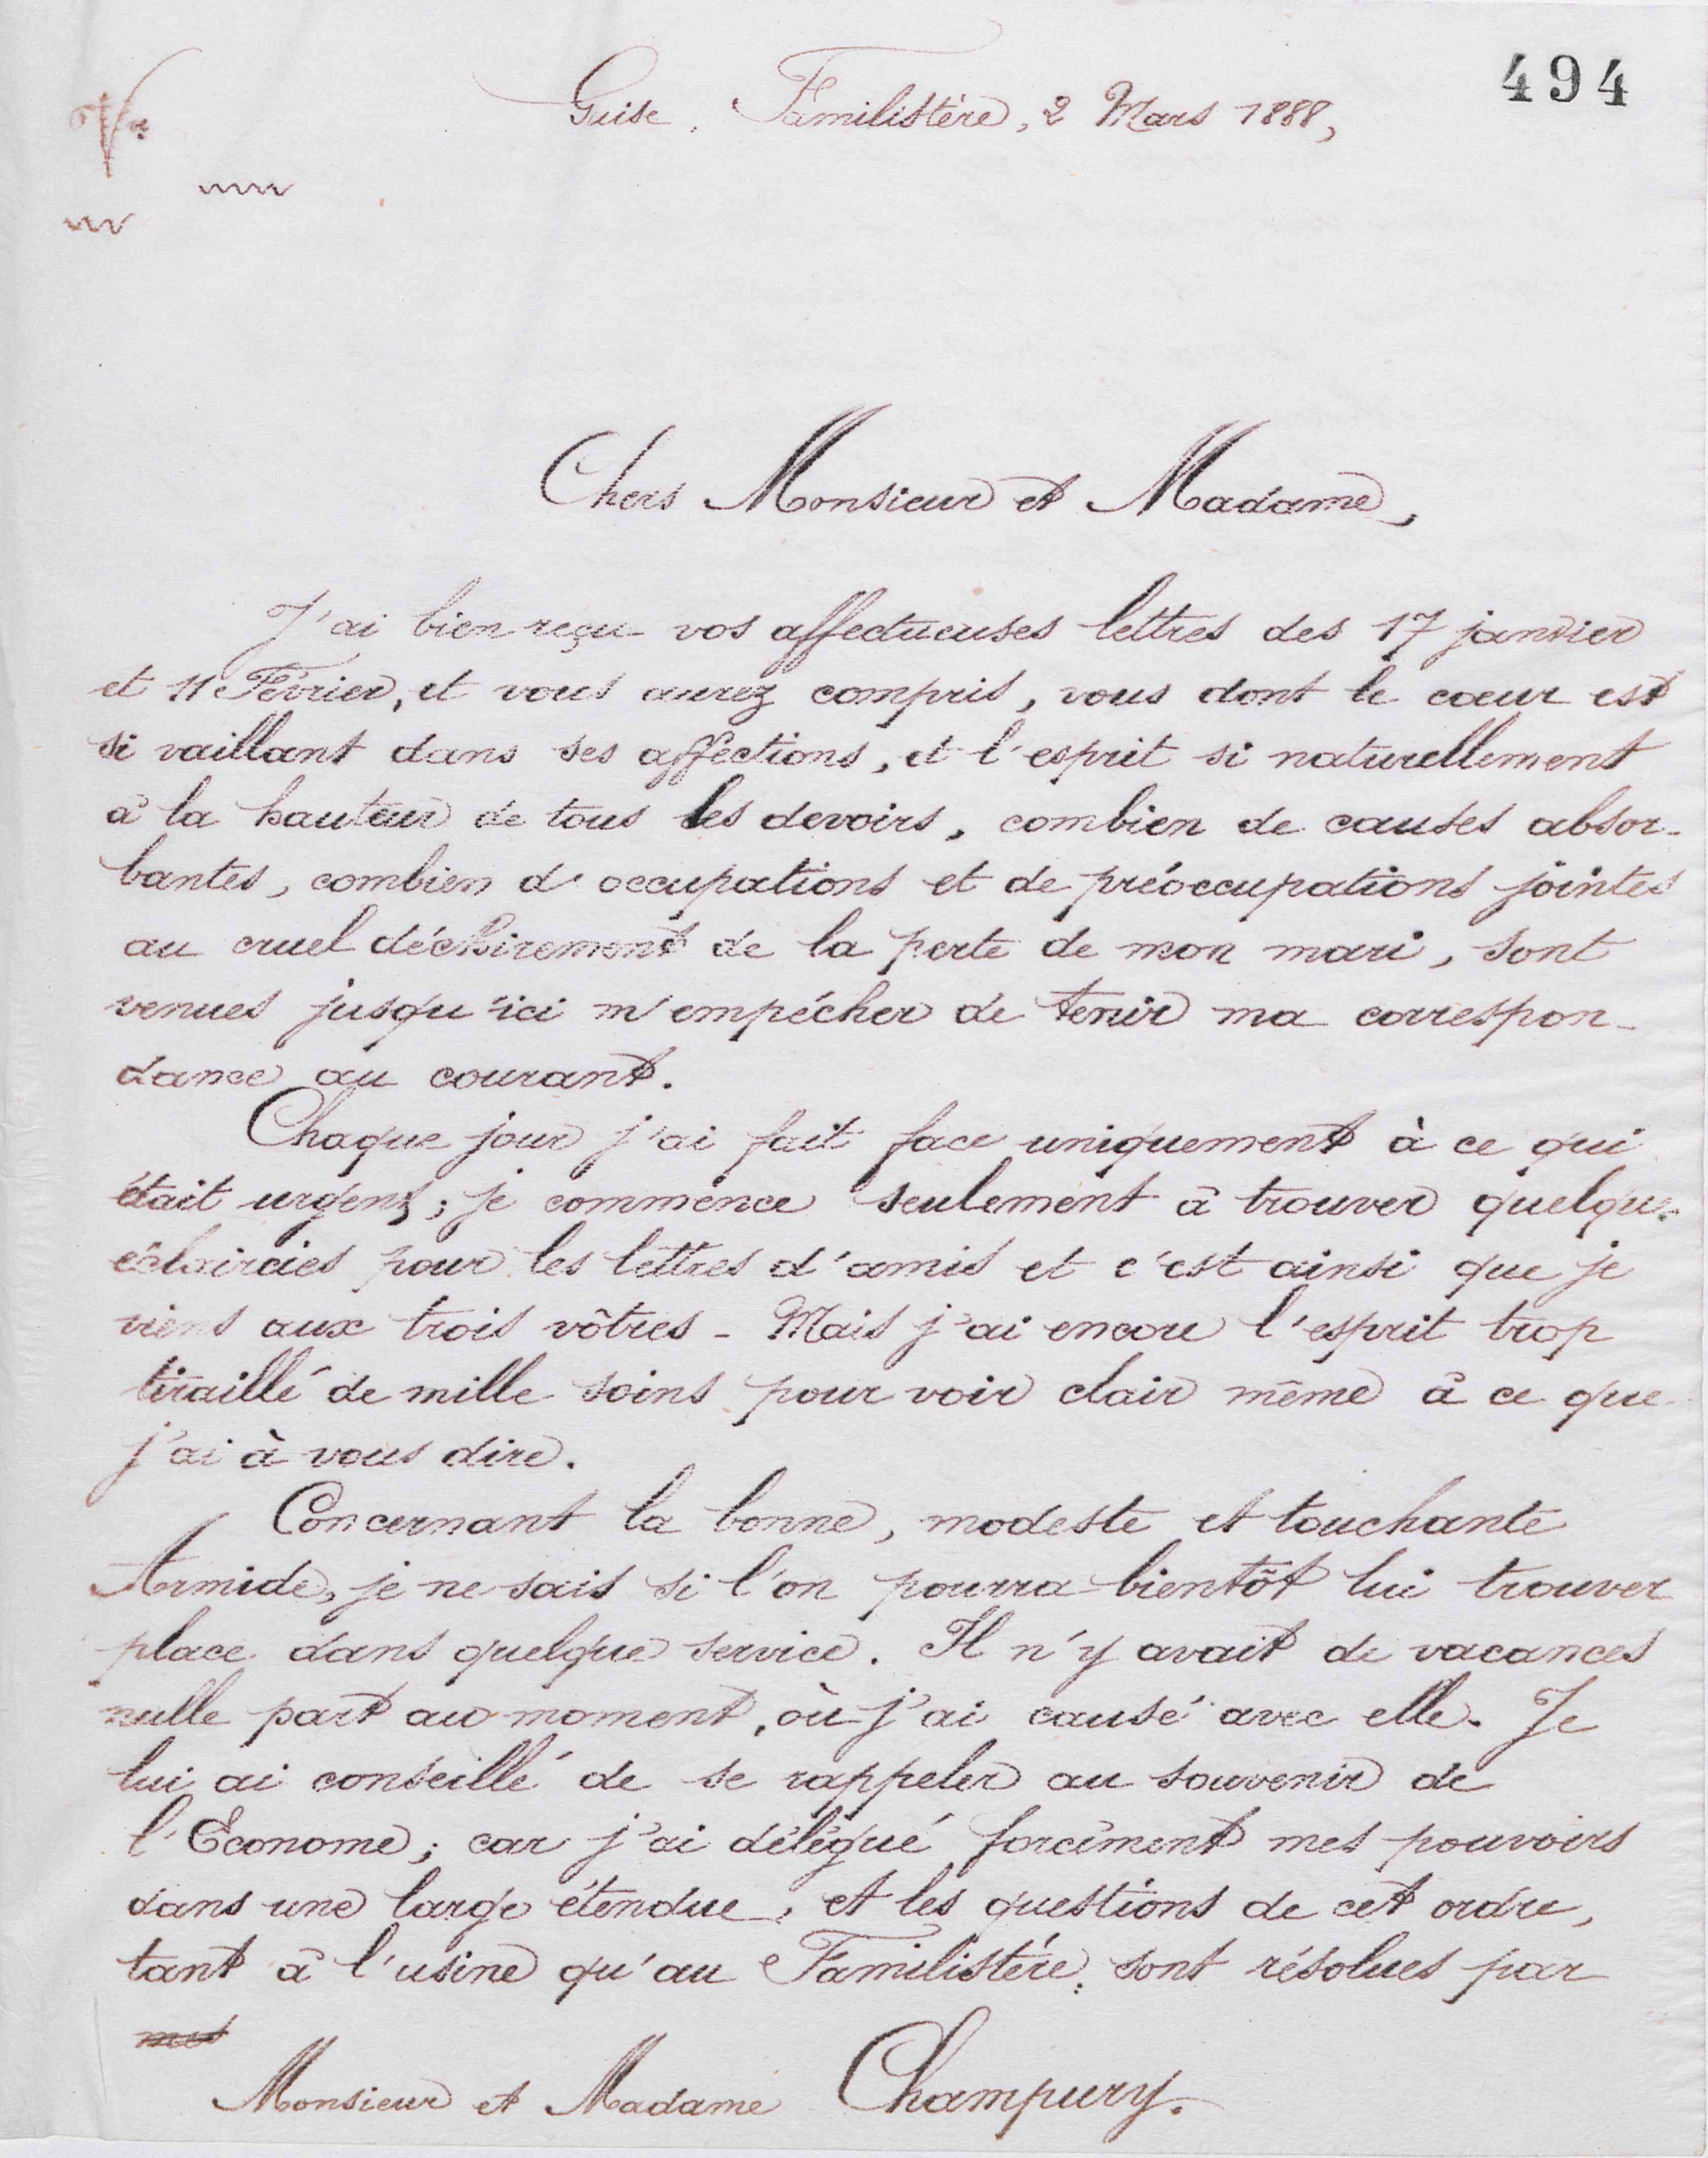 494
Guise. Familistère, 2 Mars 1888,
Chers Monsieur et Madame,
J'ai bien reçu vos affectueuses lettres des 17 janvier
et 11 Février, et vous aurez compris, vous dont le cœur est
si vaillant dans ses affections, et l'esprit si naturellement
à la hauteur de tous les devoirs, combien de causes absor-
bantes, combien d'occupations et de préoccupations jointes
au cruel déchirement de la perte de mon mari, sont
venues jusqu'ici m'empêcher de tenir ma correspon-
dance au courant.
Chaque jour j'ai fait face uniquement à ce qui
était urgent; je commence seulement à trouver quelques
éclaircies pour les lettres d'amis et c'est ainsi que je
viens aux trois vôtres - Mais j'ai encore l'esprit trop
tiraillé de mille soins pour voir clair même à ce que
j'ai à vous dire.
Concernant la bonne, modeste et touchante
Armide, je ne sais si l'on pourra bientôt lui trouver
place dans quelque service. Il n'y avait de vacances
nulle part au moment, où j'ai causé avec elle. Je
lui ai conseillé de se rappeler au souvenir de
l'Econome; car j'ai délégué forcément mes pouvoirs
dans une large étendue, et les questions de cet ordre,
tant à l'usine qu'au Familistère, sont résolues par
mes
Monsieur et Madame Champury.